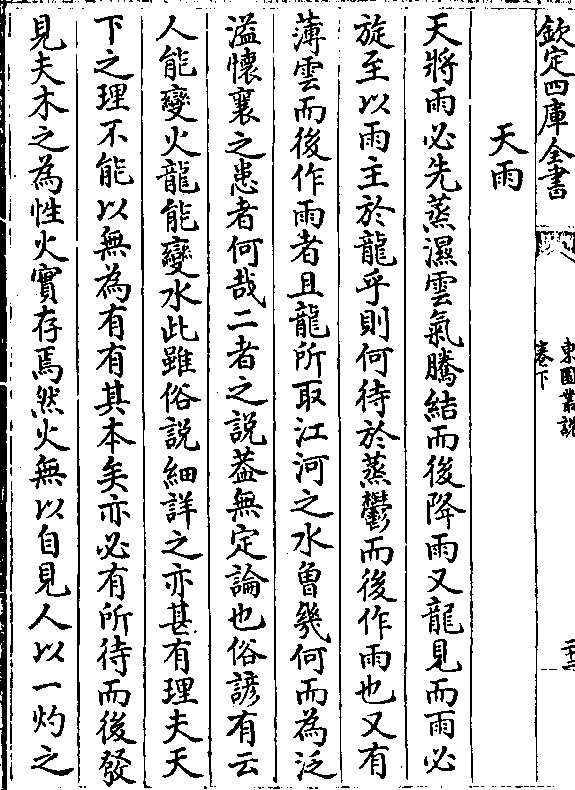 欽定四庫全書
東園叢說
卷下
天雨
天將雨必先蒸濕雲氣騰結而後降雨又龍見而雨必
旋至以雨主於龍乎則何待於蒸鬱而後作雨也又有
薄雲而後作雨者且龍所取江河之水曾幾何而為泛
溢懷襄之患者何哉二者之說葢無定論也俗諺有云
人能變火龍能變水此雖俗說細詳之亦甚有理夫天
下之理不能以無為有有其本矣亦必有所待而後發
見夫木之為性火實存焉然火無以自見人以一灼之